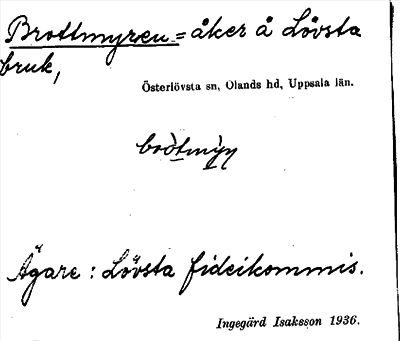 Brottmyren = åker å Lövsta
bruk,
Österlövsta sn, Olands hd, Uppsala län.
Ägare : Lövsta fideikommis.
Ingegärd Isaksson 1936.